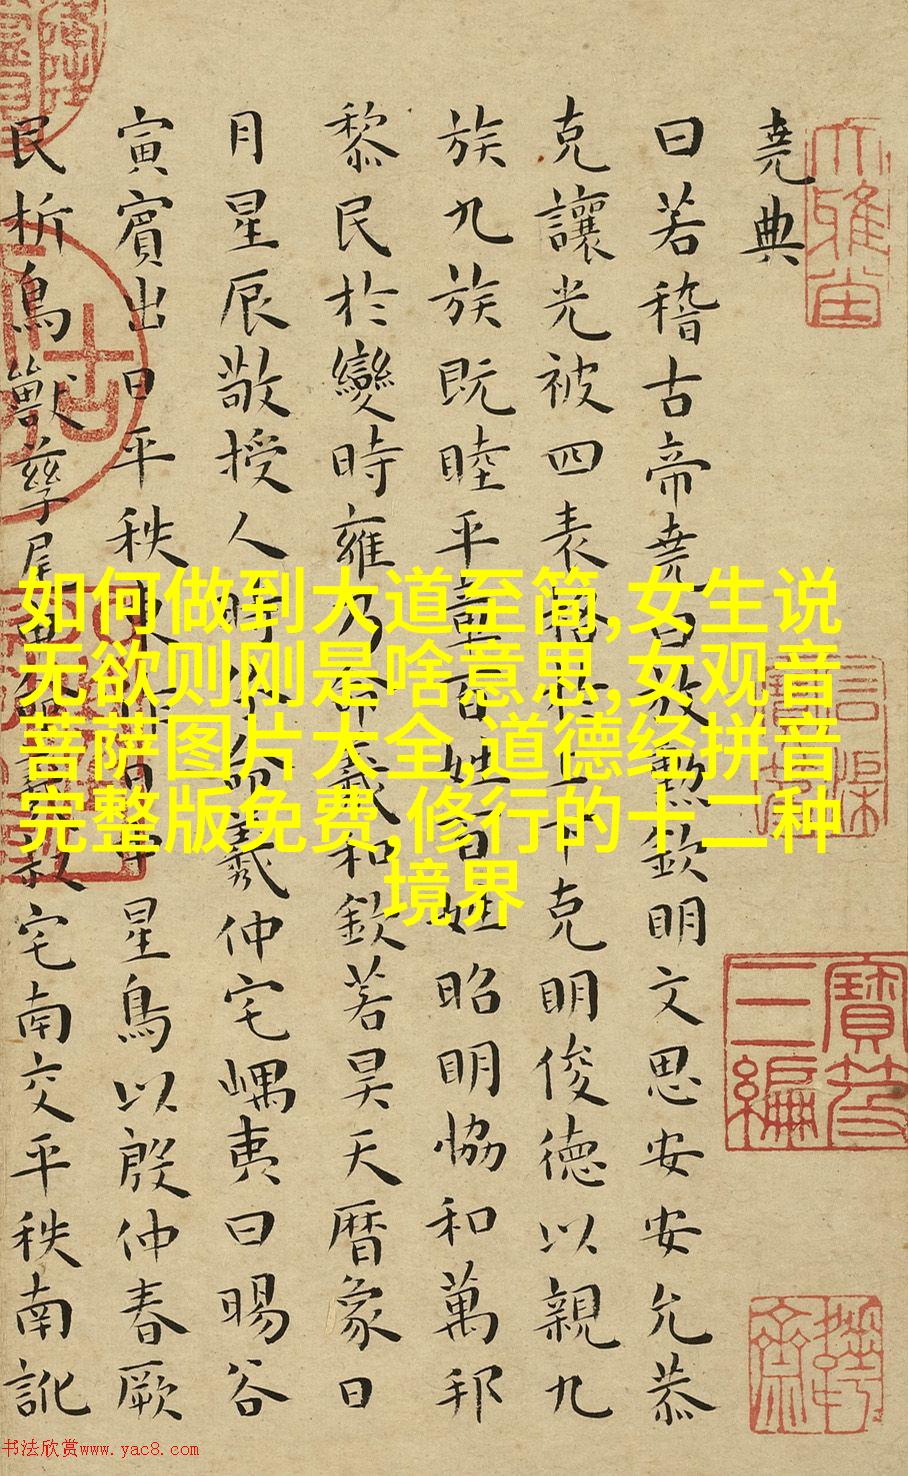 堯典
曰若稽古帝堯曰放勲欽明文思安安允恭
克讓光被四表格于上下克明俊德以親九
族九族既睦平章百姓百姓昭明恊和萬邦
黎民於變時雍乃命羲和欽若昊天曆象日
月星辰敬授人時分命羲仲宅嵎夷曰暘谷
寅賓出日平秩東作日中星鳥以殷仲春厥
民析鳥獸孳尾申命羲叔宅南交平秩南訛
如何做到大道至简,女生说
无欲则刚是啥意思,女观音
菩萨图片大全,道德经拼音
完整版免费,修行的十二种
境界
寶笈
三編
书法欣赏www.yac8.com